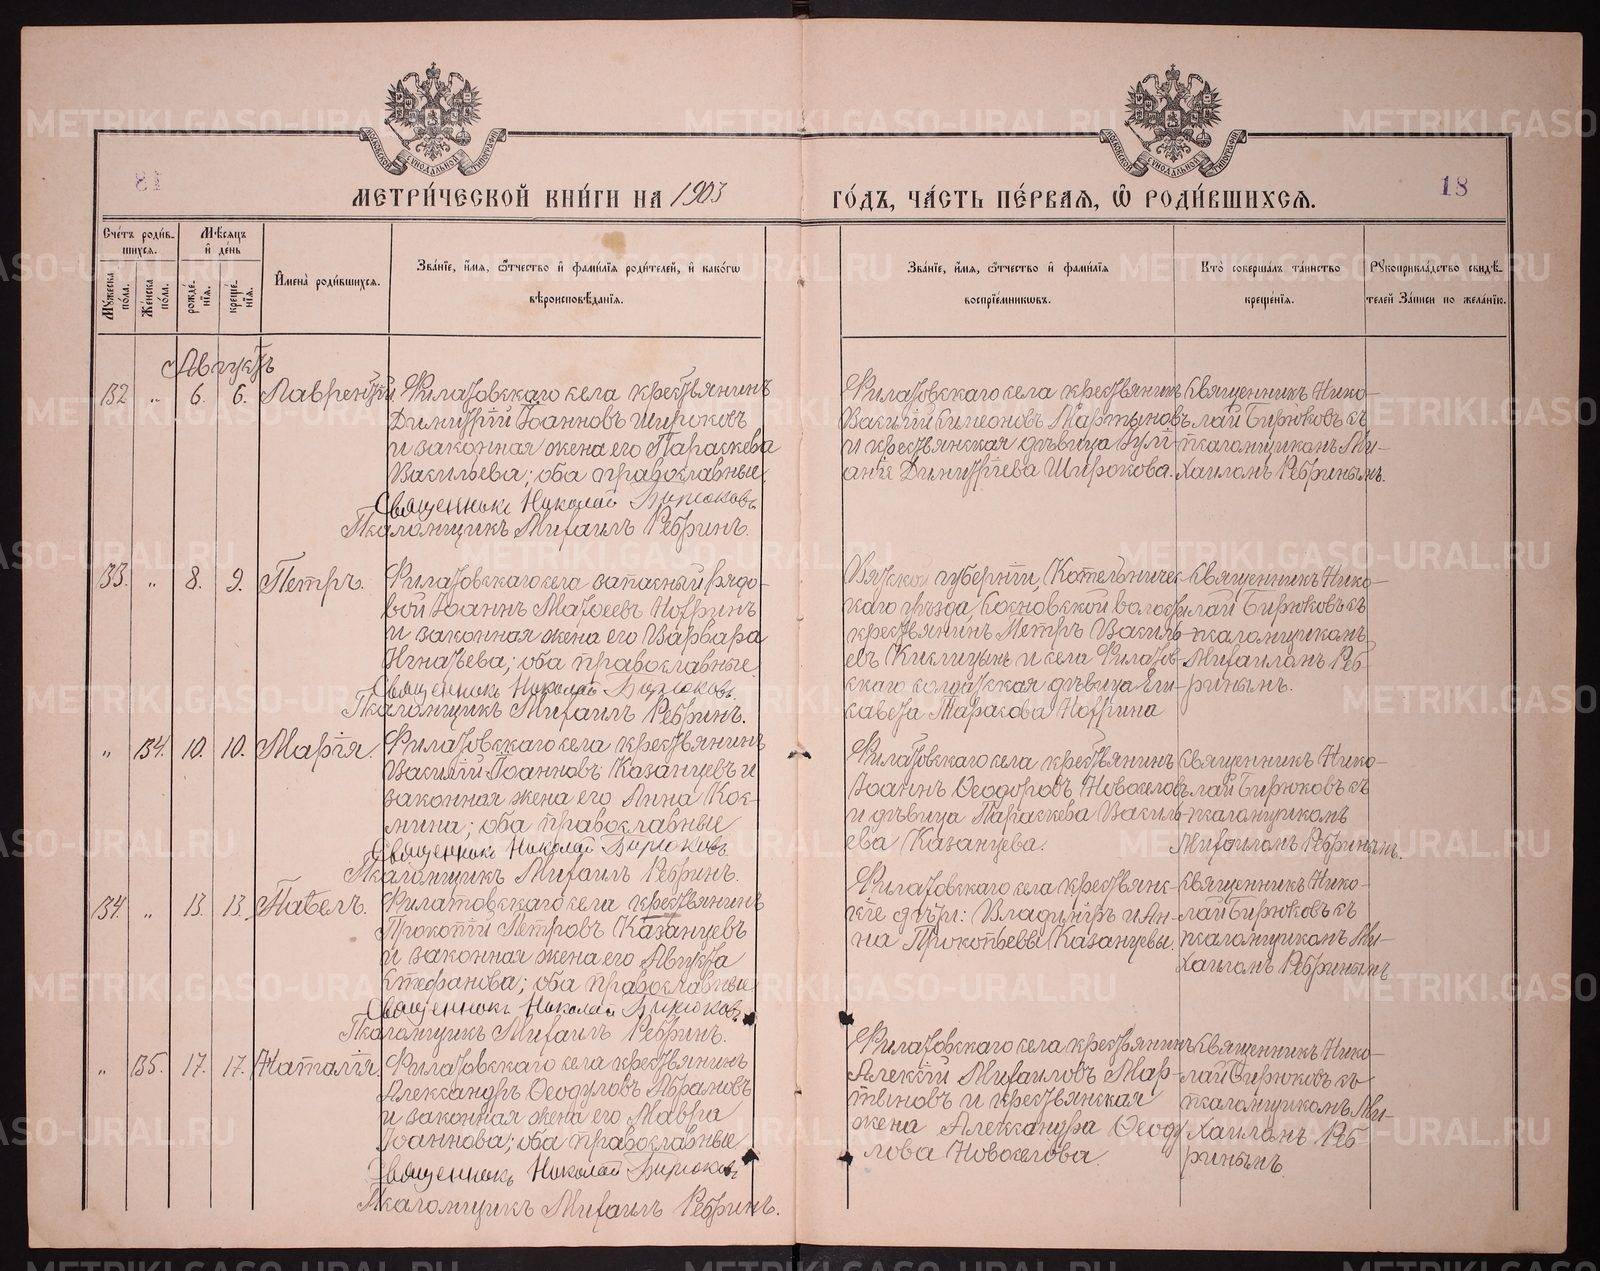 МЕТРИ́ЧЕСКОЙ КНИ́ГИ НА 1903 ГО́ДЪ, ЧА́СТЬ ПЕ́РВАЯ, Ѿ РОДИ́ВШИХСЯ.
18
Сче́тъ роди́в-
шихся.
Му́жеска по́ла.
Же́нска по́ла.
Мѣ́сяцъ
и де́нь
рожде́-
нїя.
креще́-
нїя.
Имена̀ роди́вшихся.
Зва́нїе, и́мя, ѻ́тчество и фами́лїя роди́телей, и како́гѡ
вѣроисповѣ́данїя.
Зва́нїе, и́мя, ѻ́тчество и фами́лїя
воспрїе́мниковъ.
Кто̀ соверша́лъ та́инство
креще́нїя.
Рꙋкоприкла́дство свидѣ́-
телей За́писи по жела́нїю.
Августъ
132 „ 6. 6. Лаврентій
Филатовскаго села крестьянинъ
Димитрій Іоанновъ Широковъ
и законная жена его Параскева
Васильева; оба православные
Священникъ Николай Бирюковъ
Псаломщикъ Михаилъ Ребринъ.
Филатовскаго села крестьянинъ
Василій Симеоновъ Мартыновъ
и крестьянская дѣвица Іулі-
анія Димитріева Широкова.
Священникъ Нико-
лай Бирюковъ съ
псаломщикомъ Ми-
хаиломъ Ребринымъ.
133. „ 8. 9. Петръ.
Филатовскаго села запасный рядо-
вой Іоаннъ Матѳеевъ
и законная жена его Варвара
Игнатьева; оба православные
Священникъ Николай Бирюковъ
Псаломщикъ Михаилъ Ребринъ.
Вятской губерніи, Котельничес-
каго уѣзда, Сосновской волости
крестьянинъ Петръ Василь-
евъ Кислицынъ и села Филатов-
скаго солдатская дѣвица Ели-
савета
Священникъ Нико-
лай Бирюковъ съ
псаломщикомъ
Михаиломъ Реб-
ринымъ.
„ 134. 10. 10. Марія.
Филатовскаго села крестьянинъ
Василій Іоанновъ Казанцевъ и
законная жена его Анна Кос-
мина; оба православные
Священникъ Николай Бирюковъ
Псаломщикъ Михаилъ Ребринъ.
Филатовскаго села крестьянинъ
Іоаннъ Ѳеодоровъ Новоселовъ
и дѣвица Параскева Василь-
ева Казанцева.
Священникъ Нико-
лай Бирюковъ съ
псаломщикомъ
Михаиломъ Ребринымъ.
134. „ 13. 13. Павелъ.
Филатовскаго села крестьянинъ
Прокопій Петровъ Казанцевъ
и законная жена его Августа
Стефанова; оба православные
Священникъ Николай Бирюковъ
Псаломщикъ Михаилъ Ребринъ.
Филатовскаго села крестьянс-
кіе дѣти: Владиміръ и Ан-
на Прокопьевы Казанцевы.
Священникъ Нико-
лай Бирюковъ съ
псаломщикомъ Ми-
хаиломъ Ребринымъ
„ 135. 17. 17. Наталія.
Филатовскаго села крестьянинъ
Александръ Ѳеодуловъ Абрамовъ
и законная жена его Мавра
Іоаннова; оба православные
Священникъ Николай Бирюковъ
Псаломщикъ Михаилъ Ребринъ.
Филатовскаго села крестьянинъ
Алексій Михаиловъ Мар-
тыновъ и крестьянская
жена Александра Ѳеоду-
лова Новоселова.
Священникъ Нико-
лай Бирюковъ съ
псаломщикомъ Ми-
хаиломъ Реб-
ринымъ
METRIKI.GASO-URAL.RU